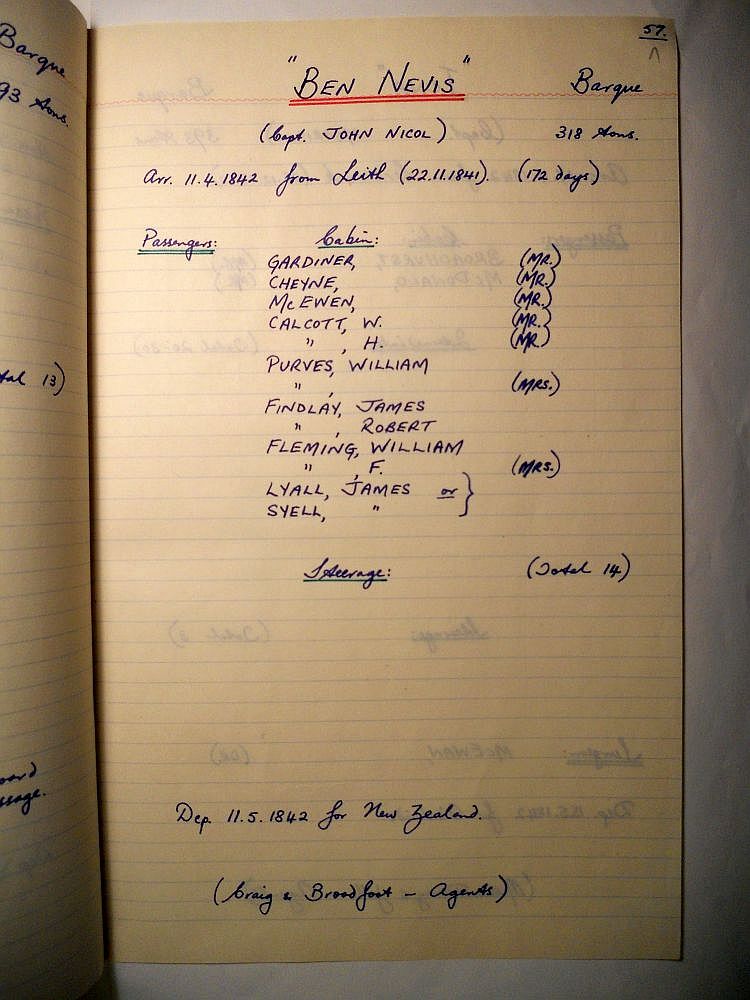 Barque
93 tons.
tal 13)
57.
"BEN NEVIS" Barque
(Capt. JOHN NICOL) 318 tons.
Arr. 11.4.1842 from Leith (22.11.1841). (172 days)
Passengers: Cabin:
GARDINER, (MR.)
CHEYNE, (MR.)
McEWEN, (MR.)
CALCOTT, W. (MR.)
" , H. (MR.)
PURVES, WILLIAM
" , (MRS.)
FINDLAY, JAMES
" , ROBERT
FLEMING, WILLIAM
" , F. (MRS.)
LYALL, JAMES or }
SYELL, "
Steerage: (Total 14)
Dep. 11.5.1842 for New Zealand.
(Craig & Broadfoot – Agents)